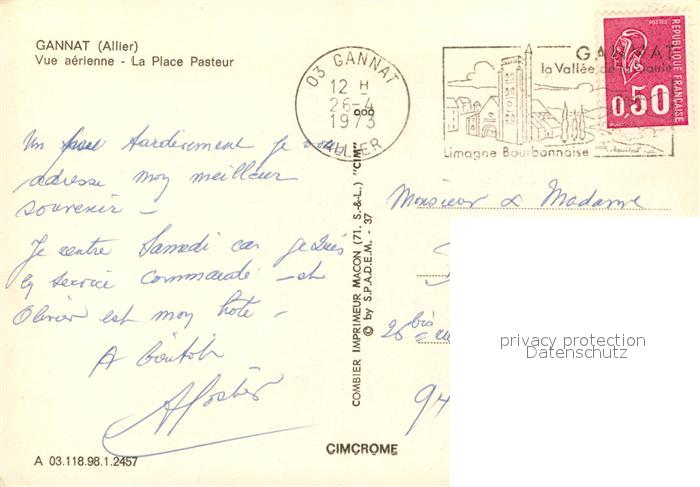 GANNAT (Allier)
Vue aérienne - La Place Pasteur
03 GANNAT
12 H
26-4
1973
ALLIER
GANNAT
la Vallée de la Sioule
Limagne Bourbonnaise
POSTES
RÉPUBLIQUE FRANÇAISE
0,50
Un peu tardivement je vous
adresse mon meilleur
souvenir -
Je rentre Samedi car je suis
en service commandé - et
Olivier est mon hôte -
A bientôt
COMBIER IMPRIMEUR MACON (71. S.-&-L.) "CIM"
© by S.P.A.D.E.M. - 37
Monsieur & Madame
26 bis
94
privacy protection
Datenschutz
CIMCROME
A 03.118.98.1.2457